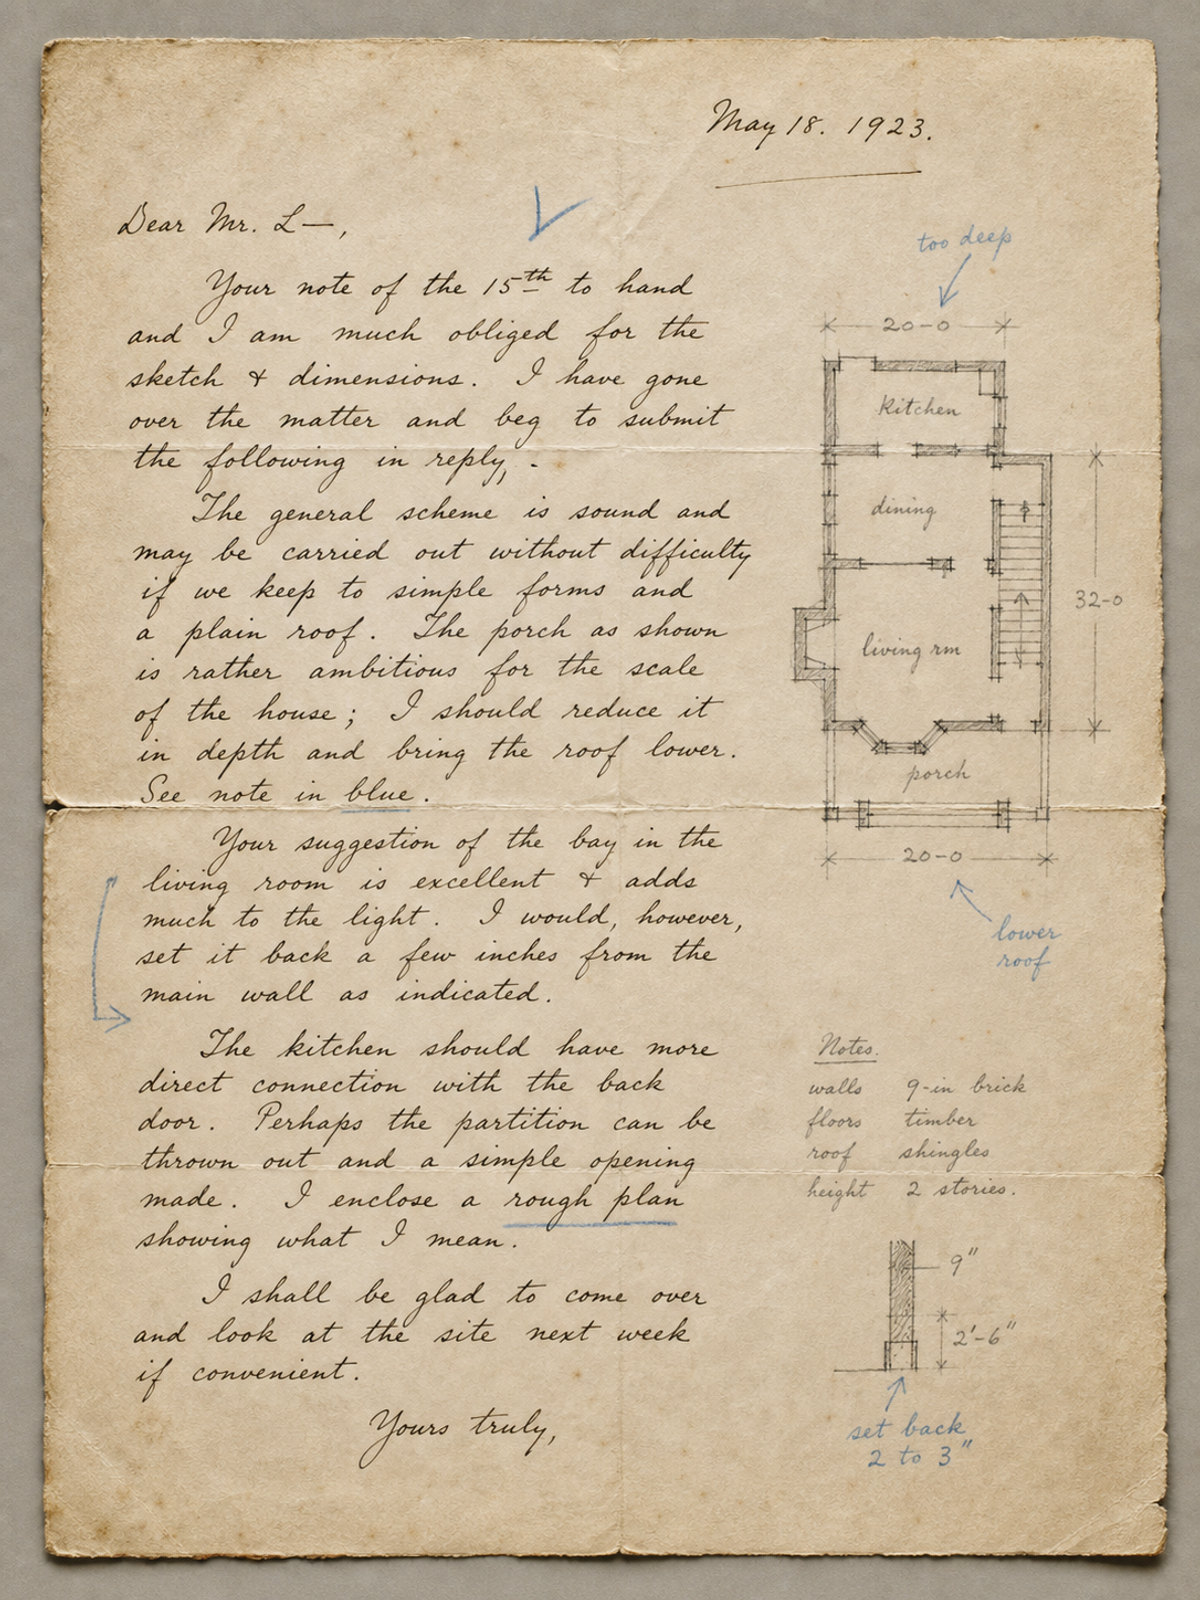 May 18. 1923.
Dear Mr. L—,
Your note of the 15th to hand
and I am much obliged for the
sketch & dimensions. I have gone
over the matter and beg to submit
the following in reply, -
The general scheme is sound and
may be carried out without difficulty
if we keep to simple forms and
a plain roof. The porch as shown
is rather ambitious for the scale
of the house; I should reduce it
in depth and bring the roof lower.
See note in blue.
Your suggestion of the bay in the
living room is excellent & adds
much to the light. I would, however,
set it back a few inches from the
main wall as indicated.
The kitchen should have more
direct connection with the back
door. Perhaps the partition can be
thrown out and a simple opening
made. I enclose a rough plan
showing what I mean.
I shall be glad to come over
and look at the site next week
if convenient.
Yours truly,
too deep
20-0
kitchen
dining
32-0
living rm
porch
20-0
lower
roof
Notes.
walls 9-in brick
floors timber
roof shingles
height 2 stories.
9"
2'-6"
set back
2 to 3"